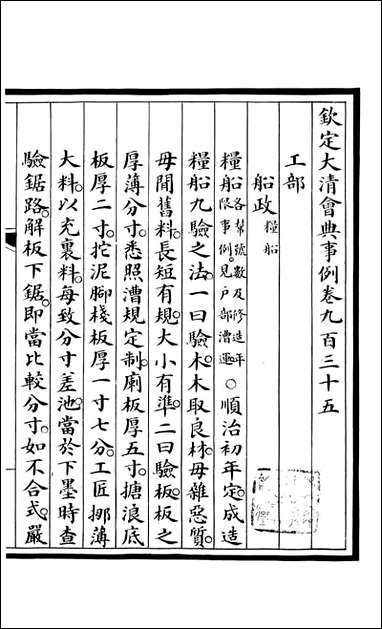 欽定大清會典事例卷九百三十五
工部
船政糧船
糧船各幫號數及修造年限事例見戶部漕運○順治初年定成造
糧船九驗之法一曰驗木木取良材毋雜惡質
毋間舊料長短有規大小有準二曰驗板板之
厚薄分寸悉照漕規定制廟板厚五寸搪浪底
板厚二寸拕泥腳棧板厚一寸七分工匠挪薄
大料以充裏料每致分寸差池當於下墨時查
驗鋸路解板下鋸即當比較分寸如不合式嚴